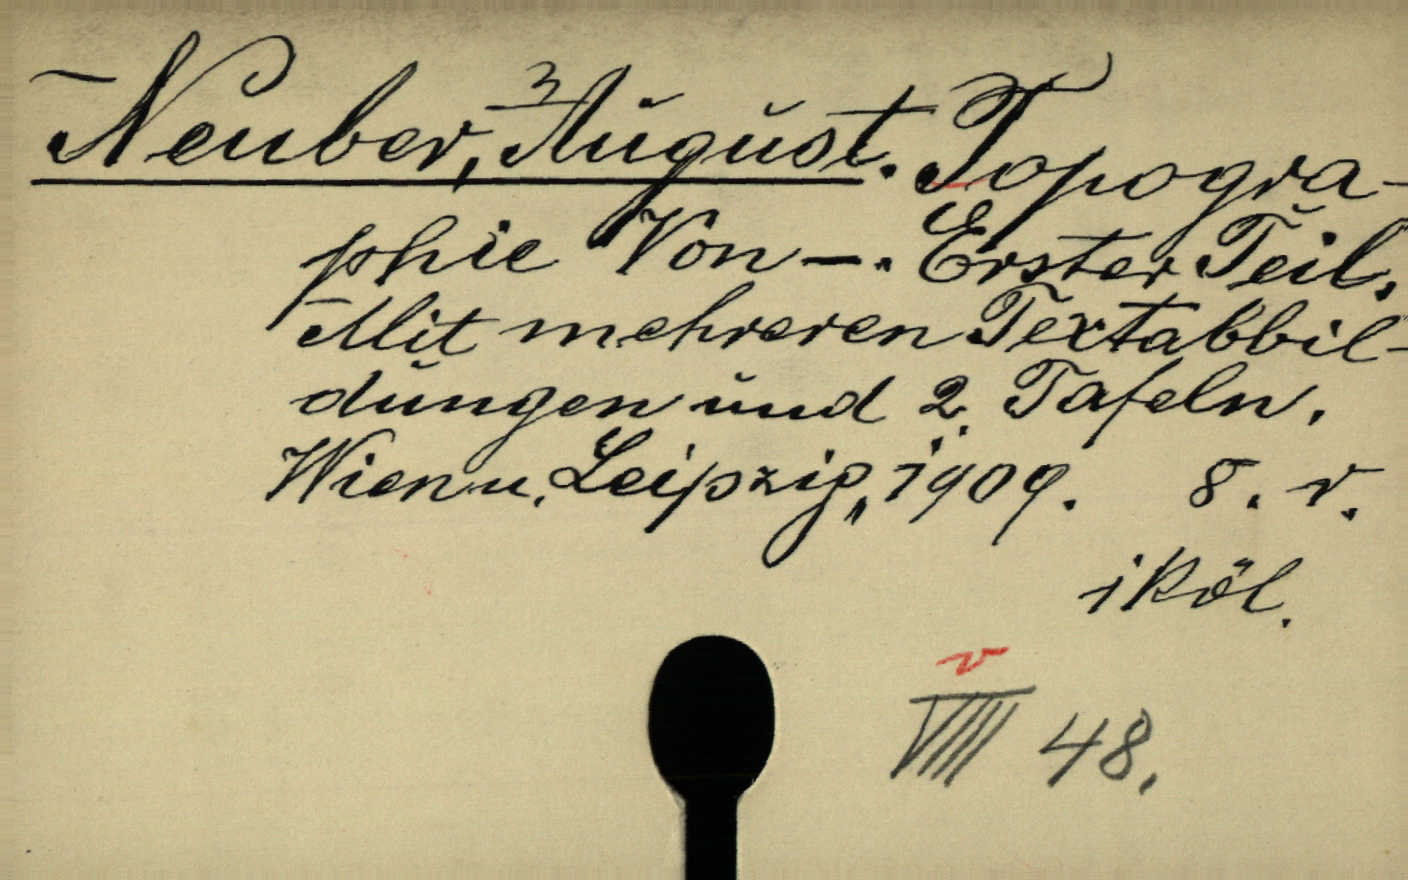 Neuber, August. Topogra-
phie Von –. Erster Teil.
Mit mehreren Textabbil-
dungen und 2 Tafeln.
Wien u. Leipzig, 1909. 8. r.
1 Köl.
VIIII 48.